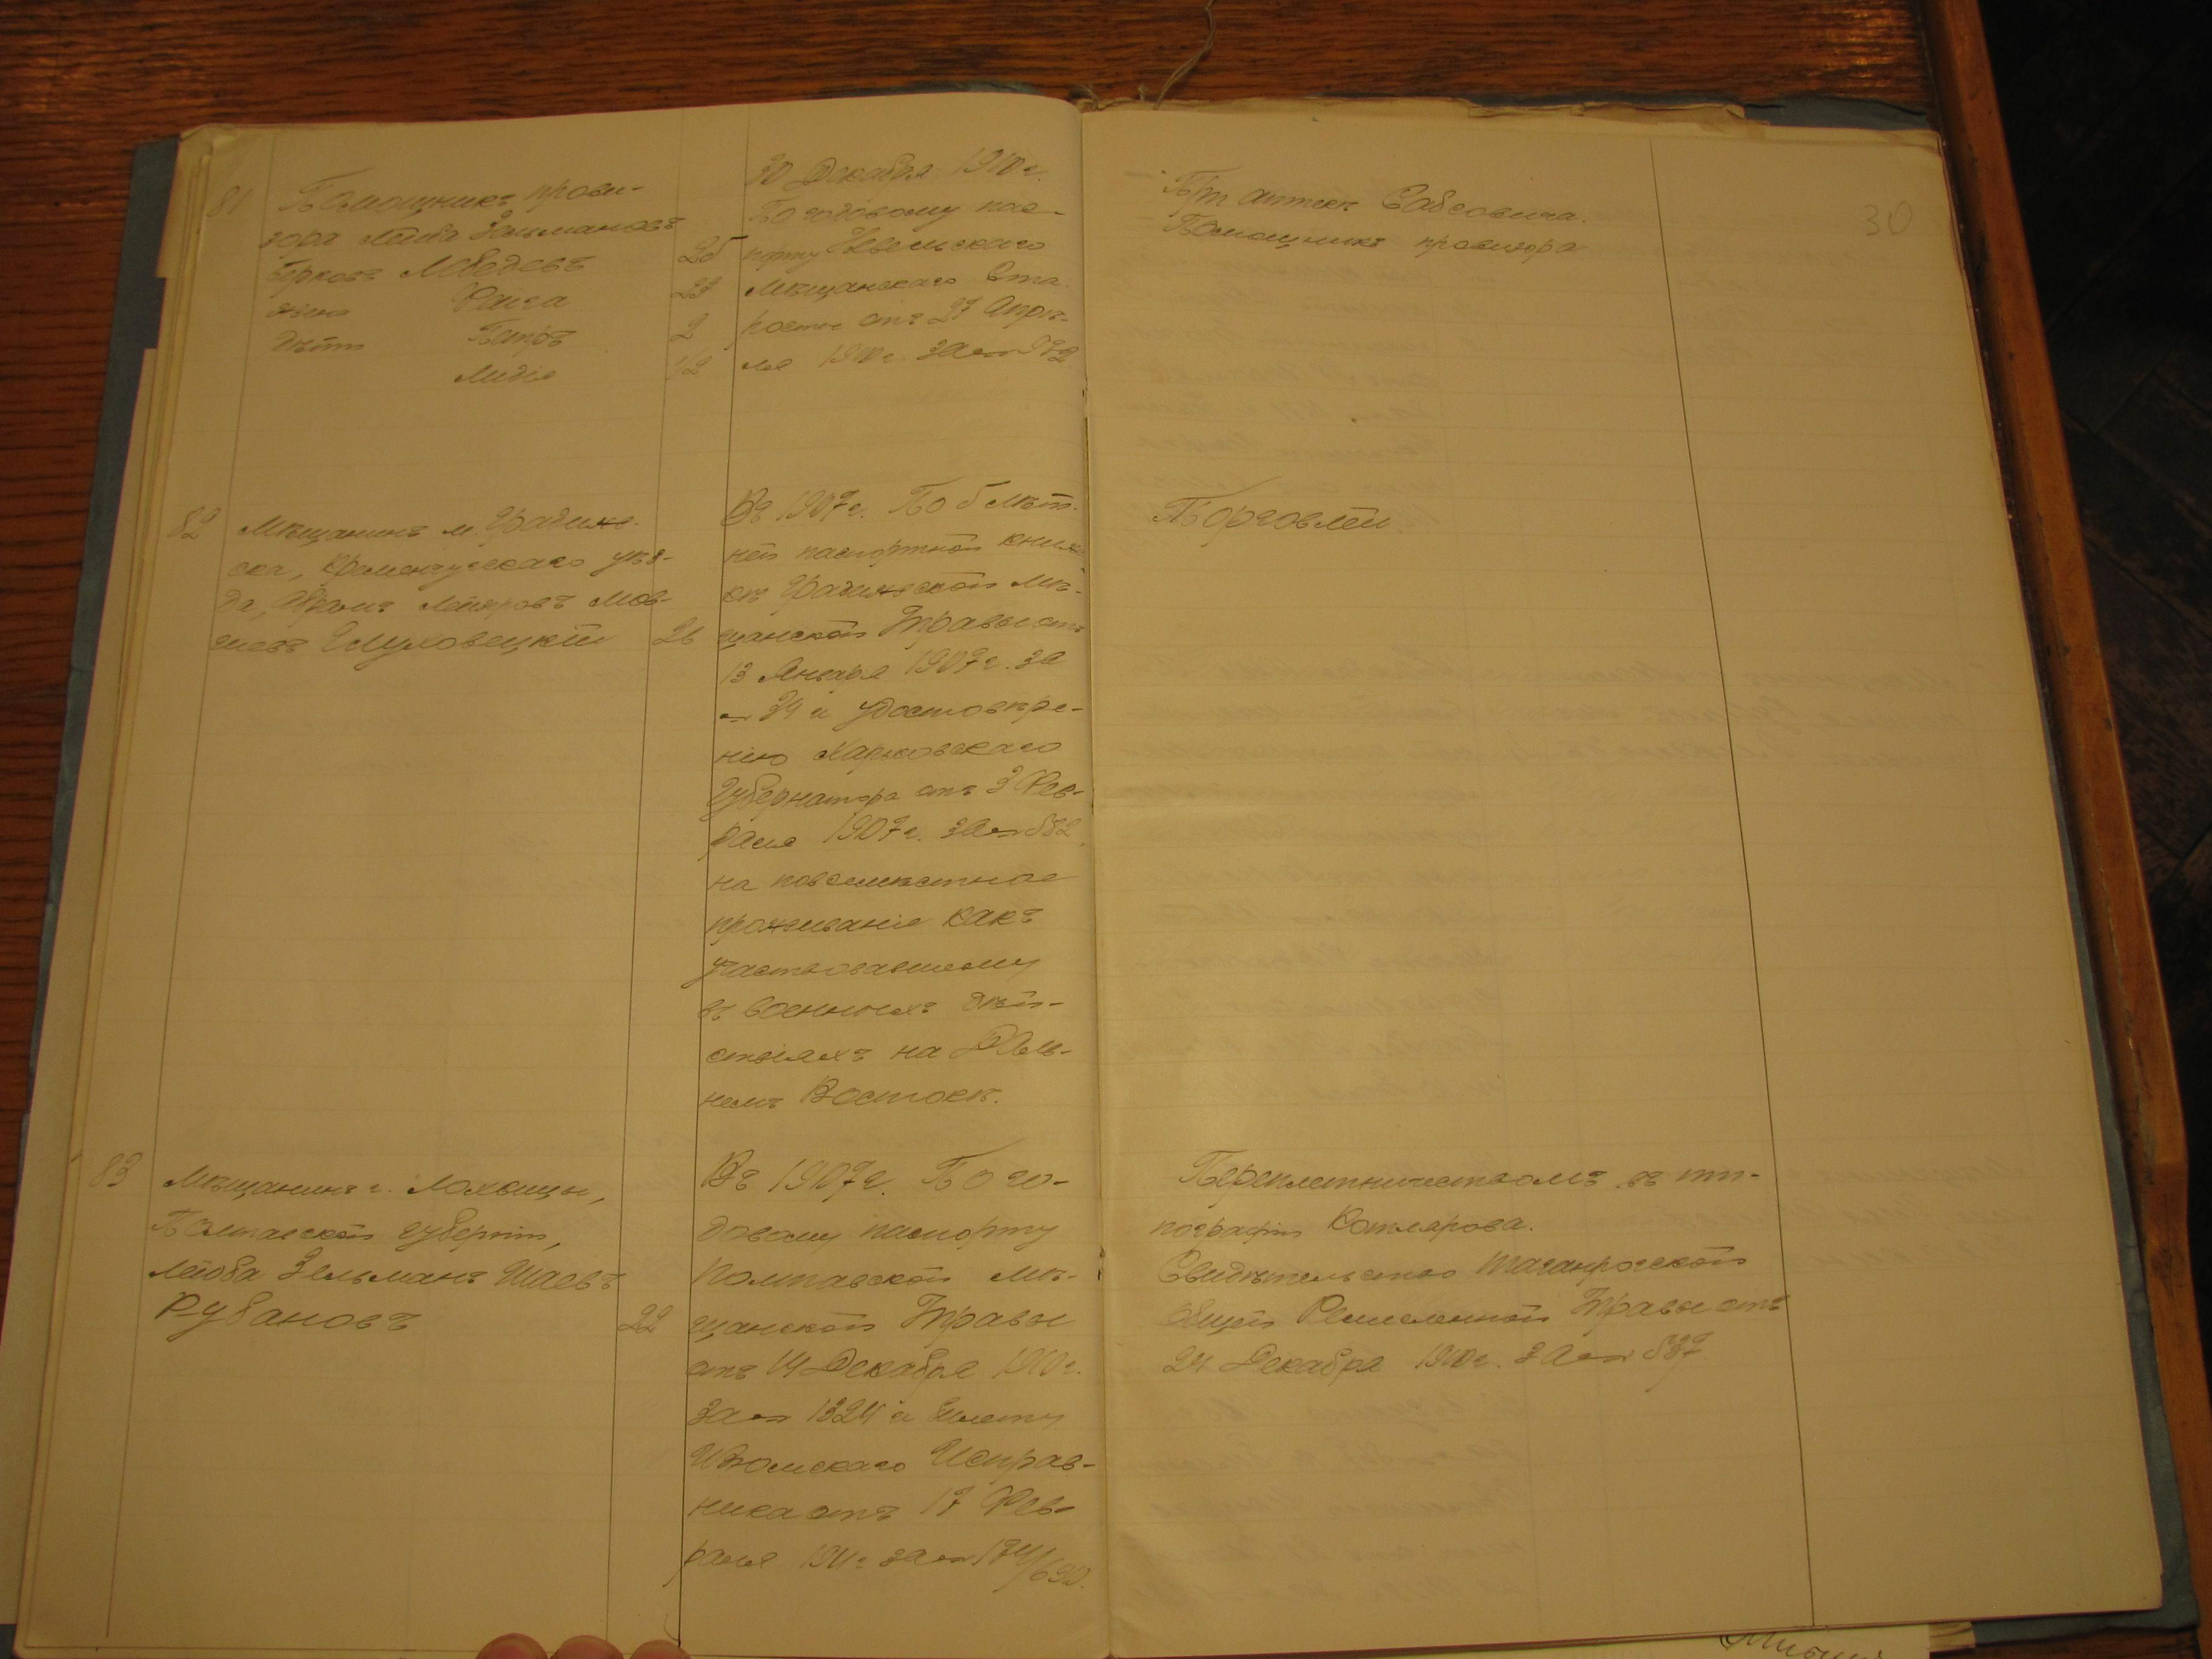 30
81
Помощникъ прови-
зора Лейба Зельмановъ
Берковъ Лебедевъ
жена Раиса
дѣти
Лидія
26
23
2
1/2
30 Декабря 1910 г.
По годовому пас-
порту Невельскаго
Мѣщанскаго Ста-
росты отъ 27 Апрѣ-
ля 1910 г. за № 972.
Въ аптекѣ Сабсовича.
Помощникъ провизора
82
Мѣщанинъ м. Градиж-
ска, Кременчугскаго уѣз-
да, Абрамъ Лейзеровъ Мов-
шевъ
26
Въ 1907 г. По 5 лѣт-
ней паспортной книж
кѣ Градижской Мѣ-
щанской Управы отъ
13 Января 1907 г. за
№ 34 и удостовѣре-
нію Харьковскаго
Губернатора отъ 3 Фев-
раля 1907 г. за № 582
на повсемѣстное
проживаніе какъ
участвовавшему
въ военныхъ дѣй-
ствіяхъ на Даль-
немъ Востокѣ.
Торговлей
83
Мѣщанинъ г. Лохвицы,
Полтавской губерніи,
Лейба Зельманъ Шаевъ
Рубановъ
22
Въ 1907 г. По го-
довому паспорту
Полтавской Мѣ-
щанской Управы
отъ 14 Декабря 1910 г.
за № 1324 и билету
Изюмскаго Исправ-
ника отъ 17 Фев-
раля 1911 г. за № 174/690.
Переплетничествомъ въ ти-
пографіи Котлярова.
Свидѣтельство Таганрогской
Общей Ремесленной Управы отъ
24 Декабря 1910 г. за № 537.